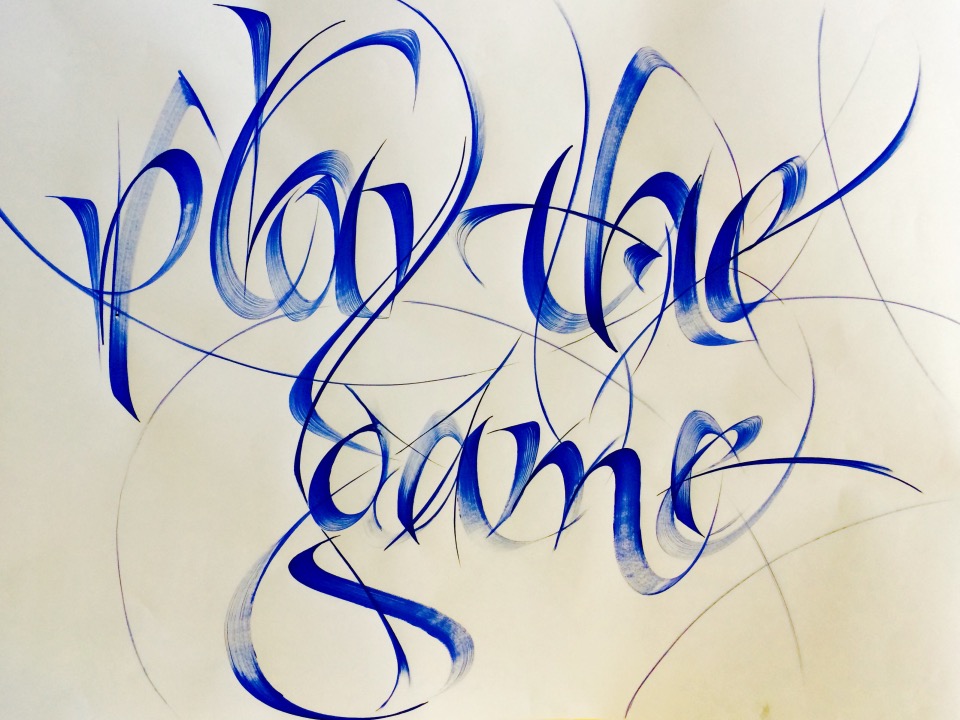 play the
game